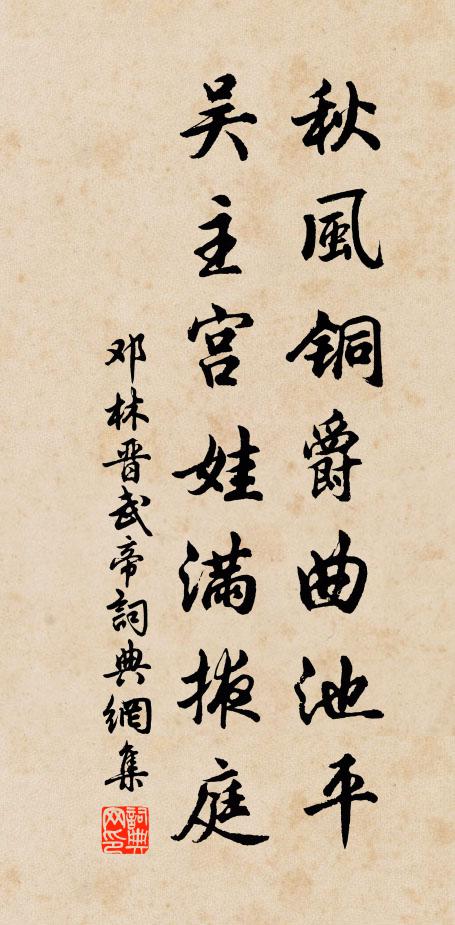 秋風铜爵曲池平
吴主宫娃满掖庭
邓林晋武帝詞典網集
詞典
网印